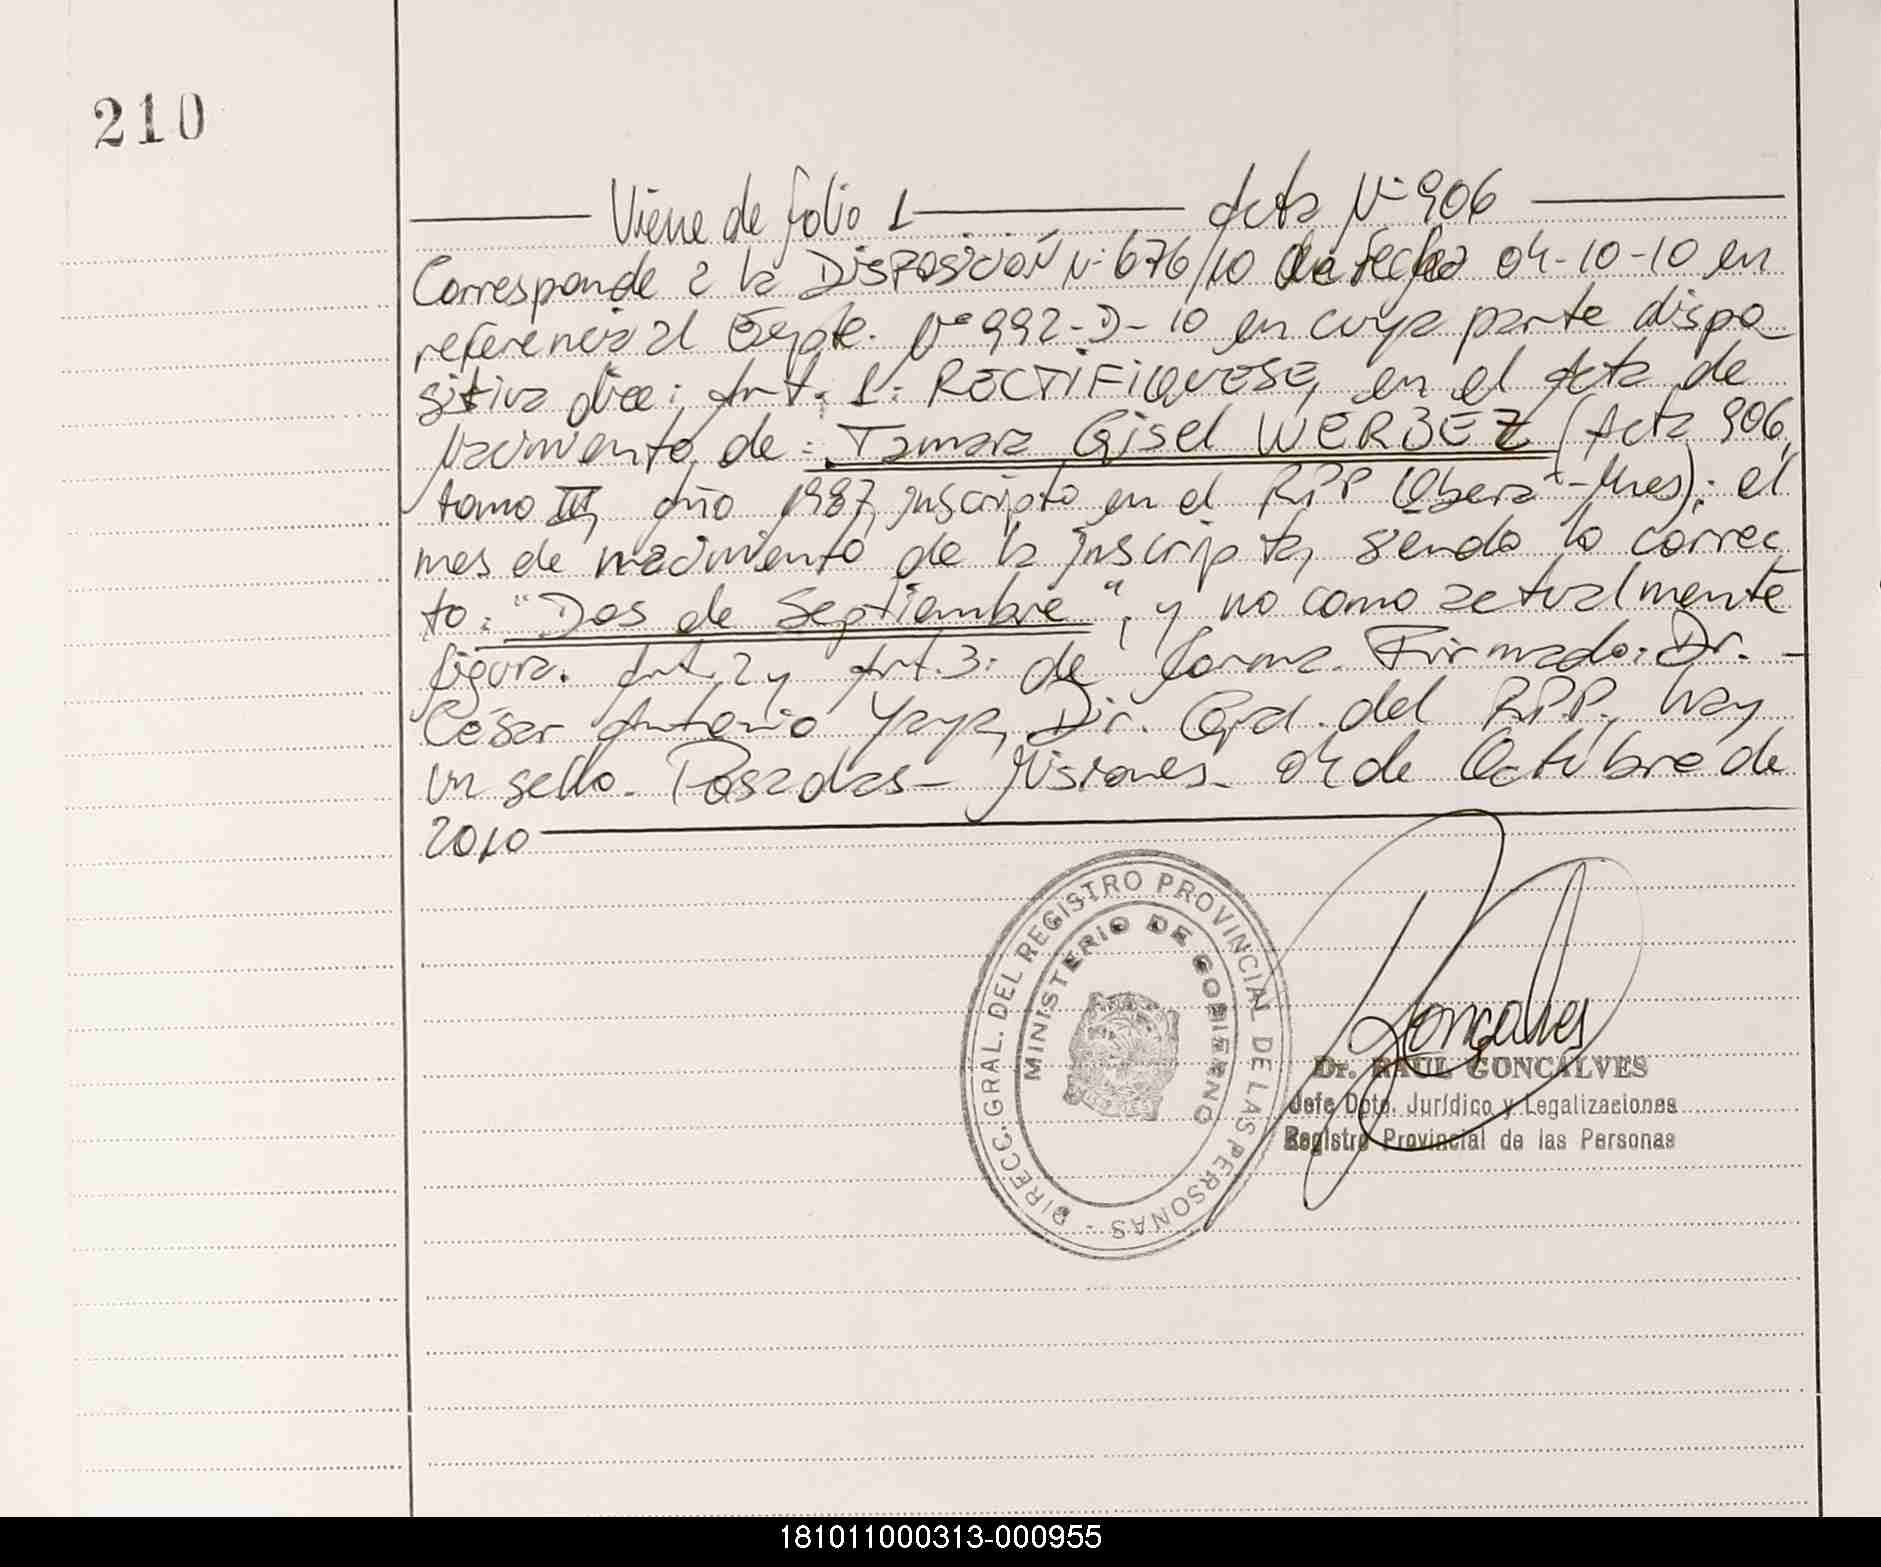 210
Viene de folio 1 Acta Nº 906
Corresponde a la DISPOSICIÓN Nº 676/10 de fecha 04-10-10 en
referencia al Expte. Nº 992-D-10 en cuya parte dispo
sitiva dice: Art. 1: RECTIFIQUESE, en el Acta de
Nacimiento de: Tamara Gisel WERBEZ (Acta 906,
tomo III, Año 1987, inscripto en el RPP (Oberá-Mnes); el
mes de nacimiento de la inscripta, siendo lo correc
to: "Dos de Septiembre", y no como actualmente
figura. Art. 2 y Art. 3: de forma. Firmado: Dr. -
César Antonio Yaya, Dir. Gral. del RPP., hay
un sello. Posadas - Misiones - 04 de Octubre de
2010
DIRECC. GRAL. DEL REGISTRO PROVINCIAL DE LAS PERSONAS -
MINISTERIO DE GOBIERNO
Gonçalves
Dr. RAUL GONCALVES
Jefe Dpto. Jurídico y Legalizaciones
Registro Provincial de las Personas
181011000313-000955